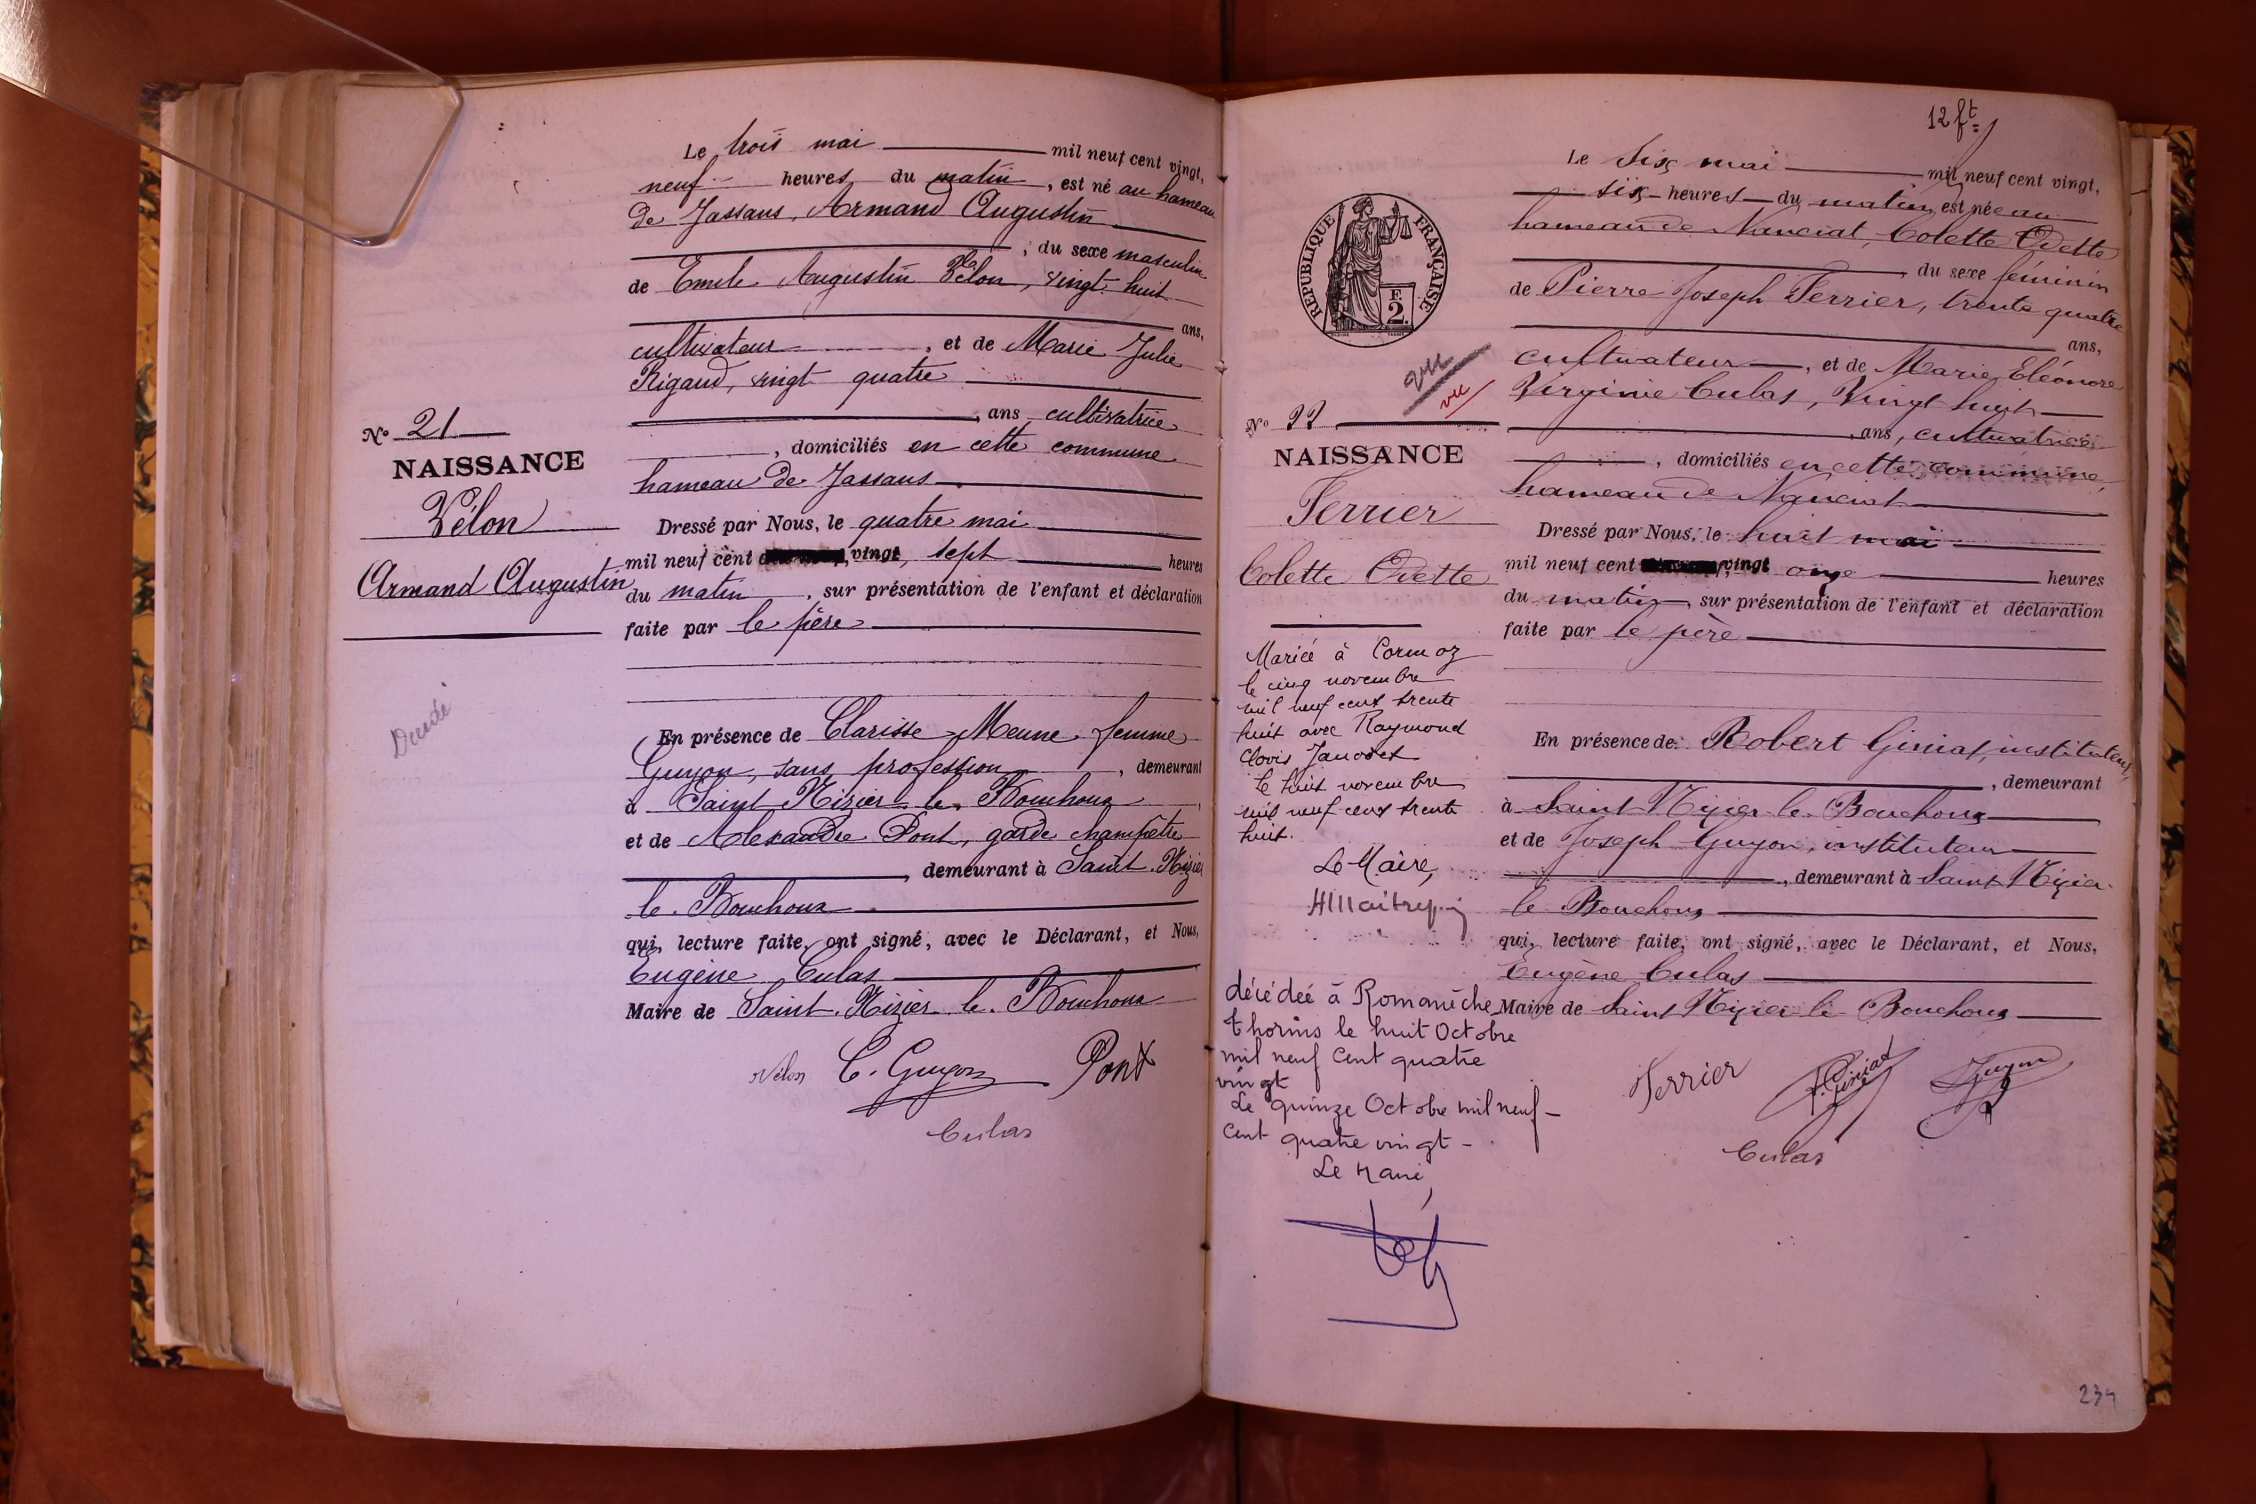 Le trois mai mil neuf cent vingt,
neuf heures du matin, est né au hameau
de Jassans, Armand Augustin
, du sexe masculin
de Emile Augustin Vélon, vingt huit
ans,
cultivateur, et de Marie Julie
Rigaud, vingt quatre
, ans cultivatrice
, domiciliés en cette commune
hameau de Jassans
Dressé par Nous, le quatre mai
mil neuf cent vingt, sept heures
du matin, sur présentation de l'enfant et déclaration
faite par le père
En présence de Clarisse Meune femme
Guyon, sans profession, demeurant
à Saint Nizier le Bouchoux,
et de Alexandre Pont, garde champêtre
, demeurant à Saint Nizier
le Bouchoux
qui, lecture faite, ont signé, avec le Déclarant, et Nous,
Eugène Culas
Maire de Saint Nizier le Bouchoux
Vélon C. Guyon Pont
Culas
No 21
NAISSANCE
Vélon
Armand Augustin
Décédé
12 ft
Le Six mai mil neuf cent vingt,
six heures du matin, est née au
hameau de Nanciat, Colette Odette
du sexe féminin
de Pierre Joseph Ferrier, trente quatre
ans,
cultivateur, et de Marie Eléonore
Virginie Culas, Vingt huit
, ans, cultivatrice
, domiciliés en cette commune,
hameau de Nanciat
Dressé par Nous, le huit mai
mil neuf cent vingt onze heures
du matin, sur présentation de l'enfant et déclaration
faite par le père
En présence de Robert Giniat, instituteur,
, demeurant
à Saint Nizier le Bouchoux
et de Joseph Guyon, instituteur
, demeurant à Saint Nizier
le Bouchoux
qui, lecture faite, ont signé, avec le Déclarant, et Nous,
Eugène Culas
Maire de Saint Nizier le Bouchoux
Ferrier R. Giniat J Guyon
Culas
REPUBLIQUE FRANÇAISE
E.
2.
vu
vu
No 22
NAISSANCE
Ferrier
Colette Odette
Mariée à Cormoz
le cinq novembre
mil neuf cent trente
huit avec Raymond
Clovis Janodet
Le huit novembre
mil neuf cent trente
huit.
Le Maire,
décédée à Romanèche
Thorins le huit Octobre
mil neuf cent quatre
vingt
Le quinze Octobre mil neuf
cent quatre vingt -
Le Maire,
234